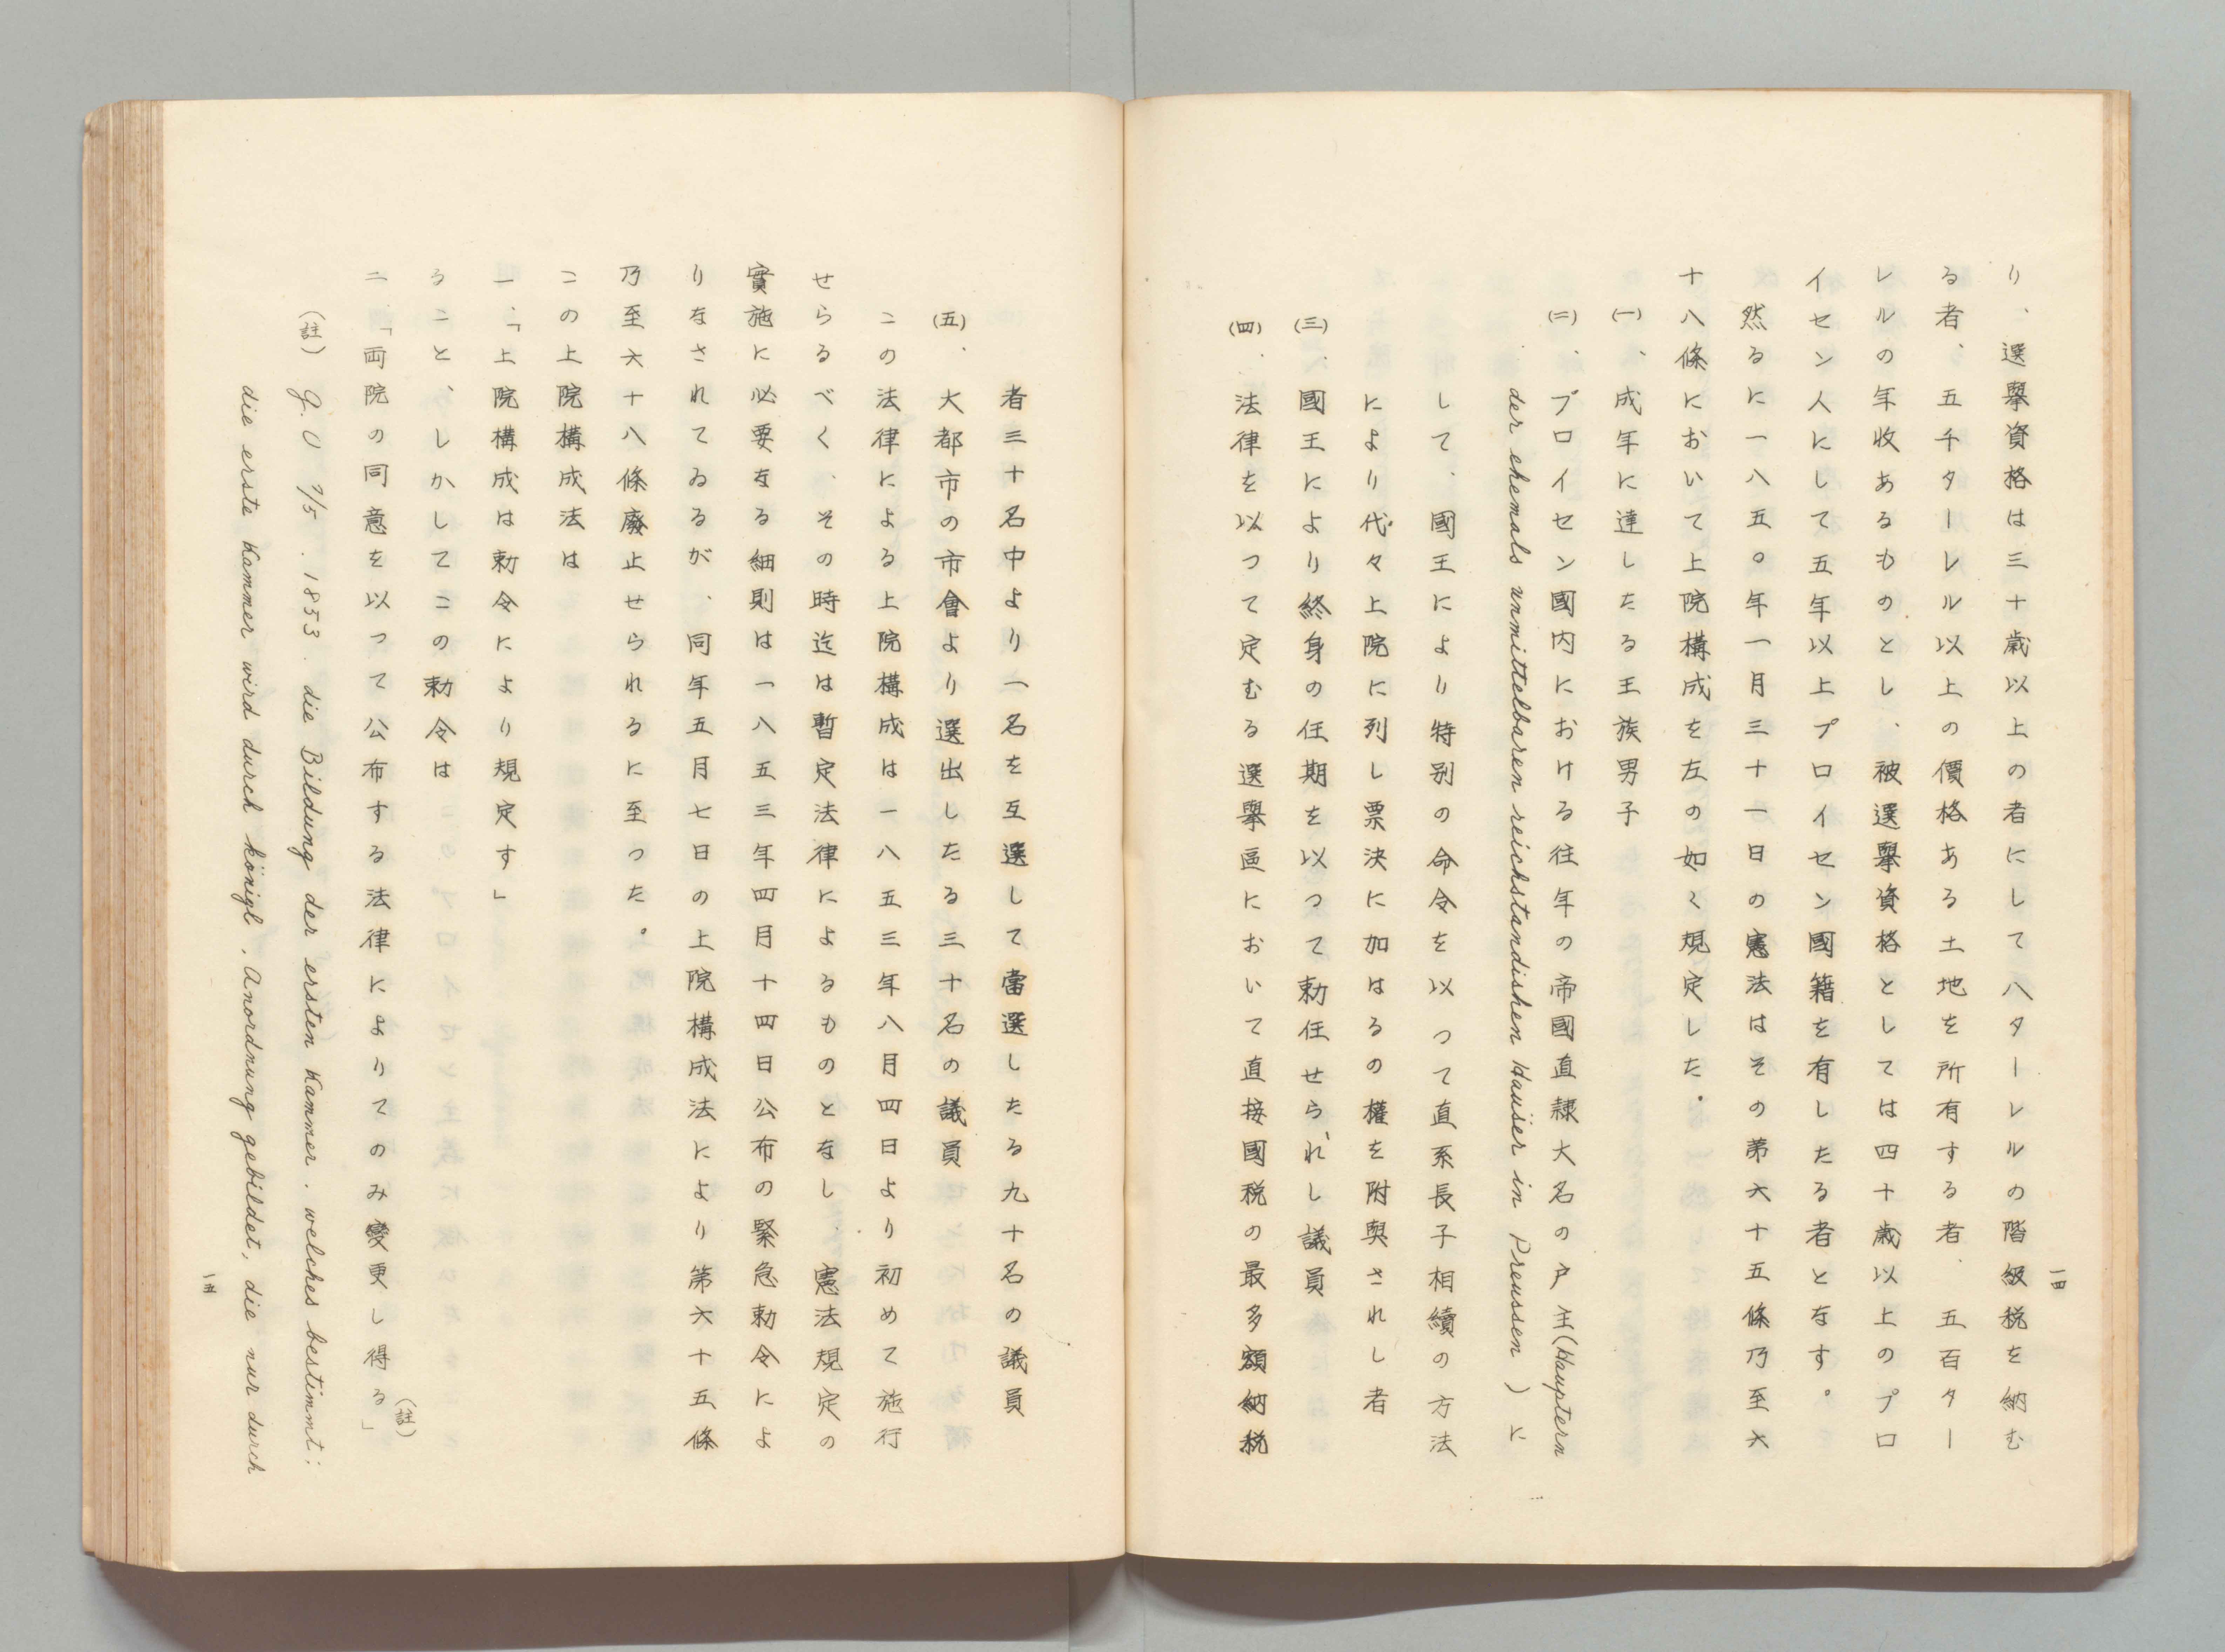 り、選擧資格は三十歳以上の者にして八ターレルの階級税を納む
る者、五千ターレル以上の價格ある土地を所有する者、五百ター
レルの年收あるものとし、被選擧資格としては四十歳以上のプロ
イセン人にして五年以上プロイセン國籍を有したる者となす。
然るに一八五〇年一月三十一日の憲法はその第六十五條乃至六
十八條において上院構成を左の如く規定した。
(一)、成年に達したる王族男子
(二)、プロイセン國内における往年の帝國直隷大名の戸主(Hauptern
der ehemals unmittelbaren reichstandishen Hauser in Preussen)に
して、國王により特別の命令を以つて直系長子相續の方法
により代々上院に列し票決に加はるの權を附與されし者
(三)、國王により終身の任期を以つて勅任せられし議員
(四)、法律を以つて定むる選擧區において直接國税の最多額納税
一四
者三十名中より一名を互選して當選したる九十名の議員
(五)、大都市の市會より選出したる三十名の議員
この法律による上院構成は一八五三年八月四日より初めて施行
せらるべく、その時迄は暫定法律によるものとなし、憲法規定の
實施に必要なる細則は一八五三年四月十四日公布の緊急勅令によ
りなされてゐるが、同年五月七日の上院構成法により第六十五條
乃至六十八條廢止せられるに至つた。
この上院構成法は
一、「上院構成は勅令により規定す」
ること、しかしてこの勅令は
二、「両院の同意を以つて公布する法律によりてのみ變更し得る」(註)
(註) G.O 7/5. 1853. die Bildung der ersten Kammer, welches bestimmt;
die erste Kammer wird durch königl. Anordnung gebildet, die nur durch
一五